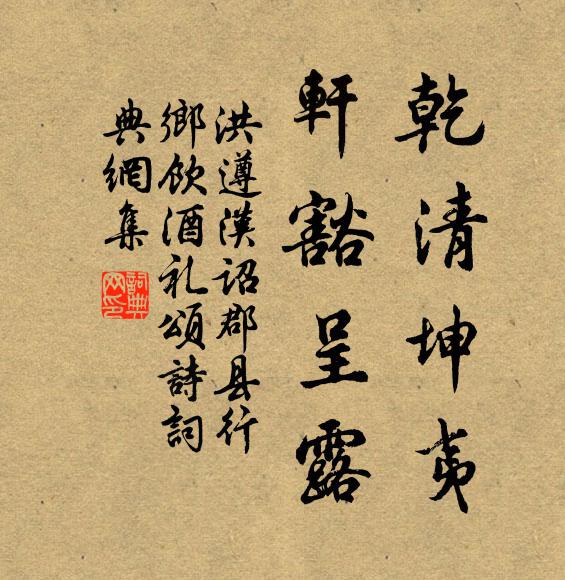 乾清坤夷
軒豁呈露
洪遵漢詔郡县行
鄉飲酒礼頌詩詞
典網集
詞典
网印